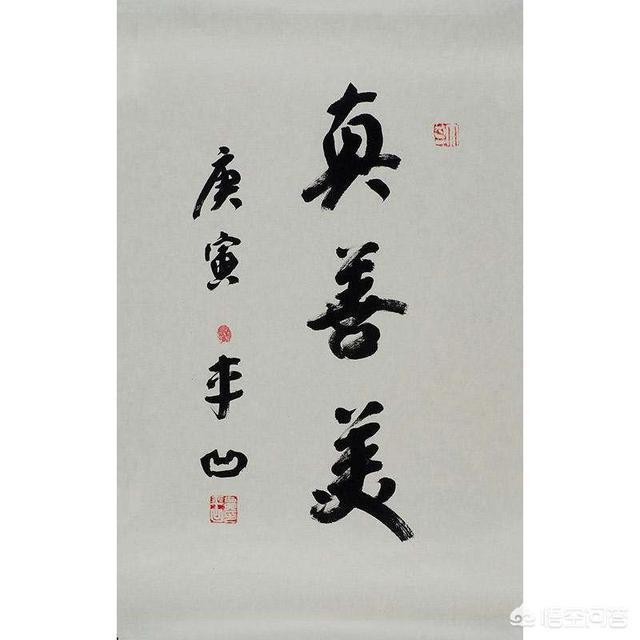 真善美
庚寅
平凹
悟空问答